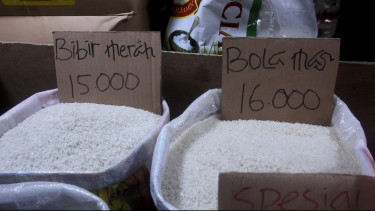 Bibir merah
15.000
Bola mas
16.000
SPESIAL